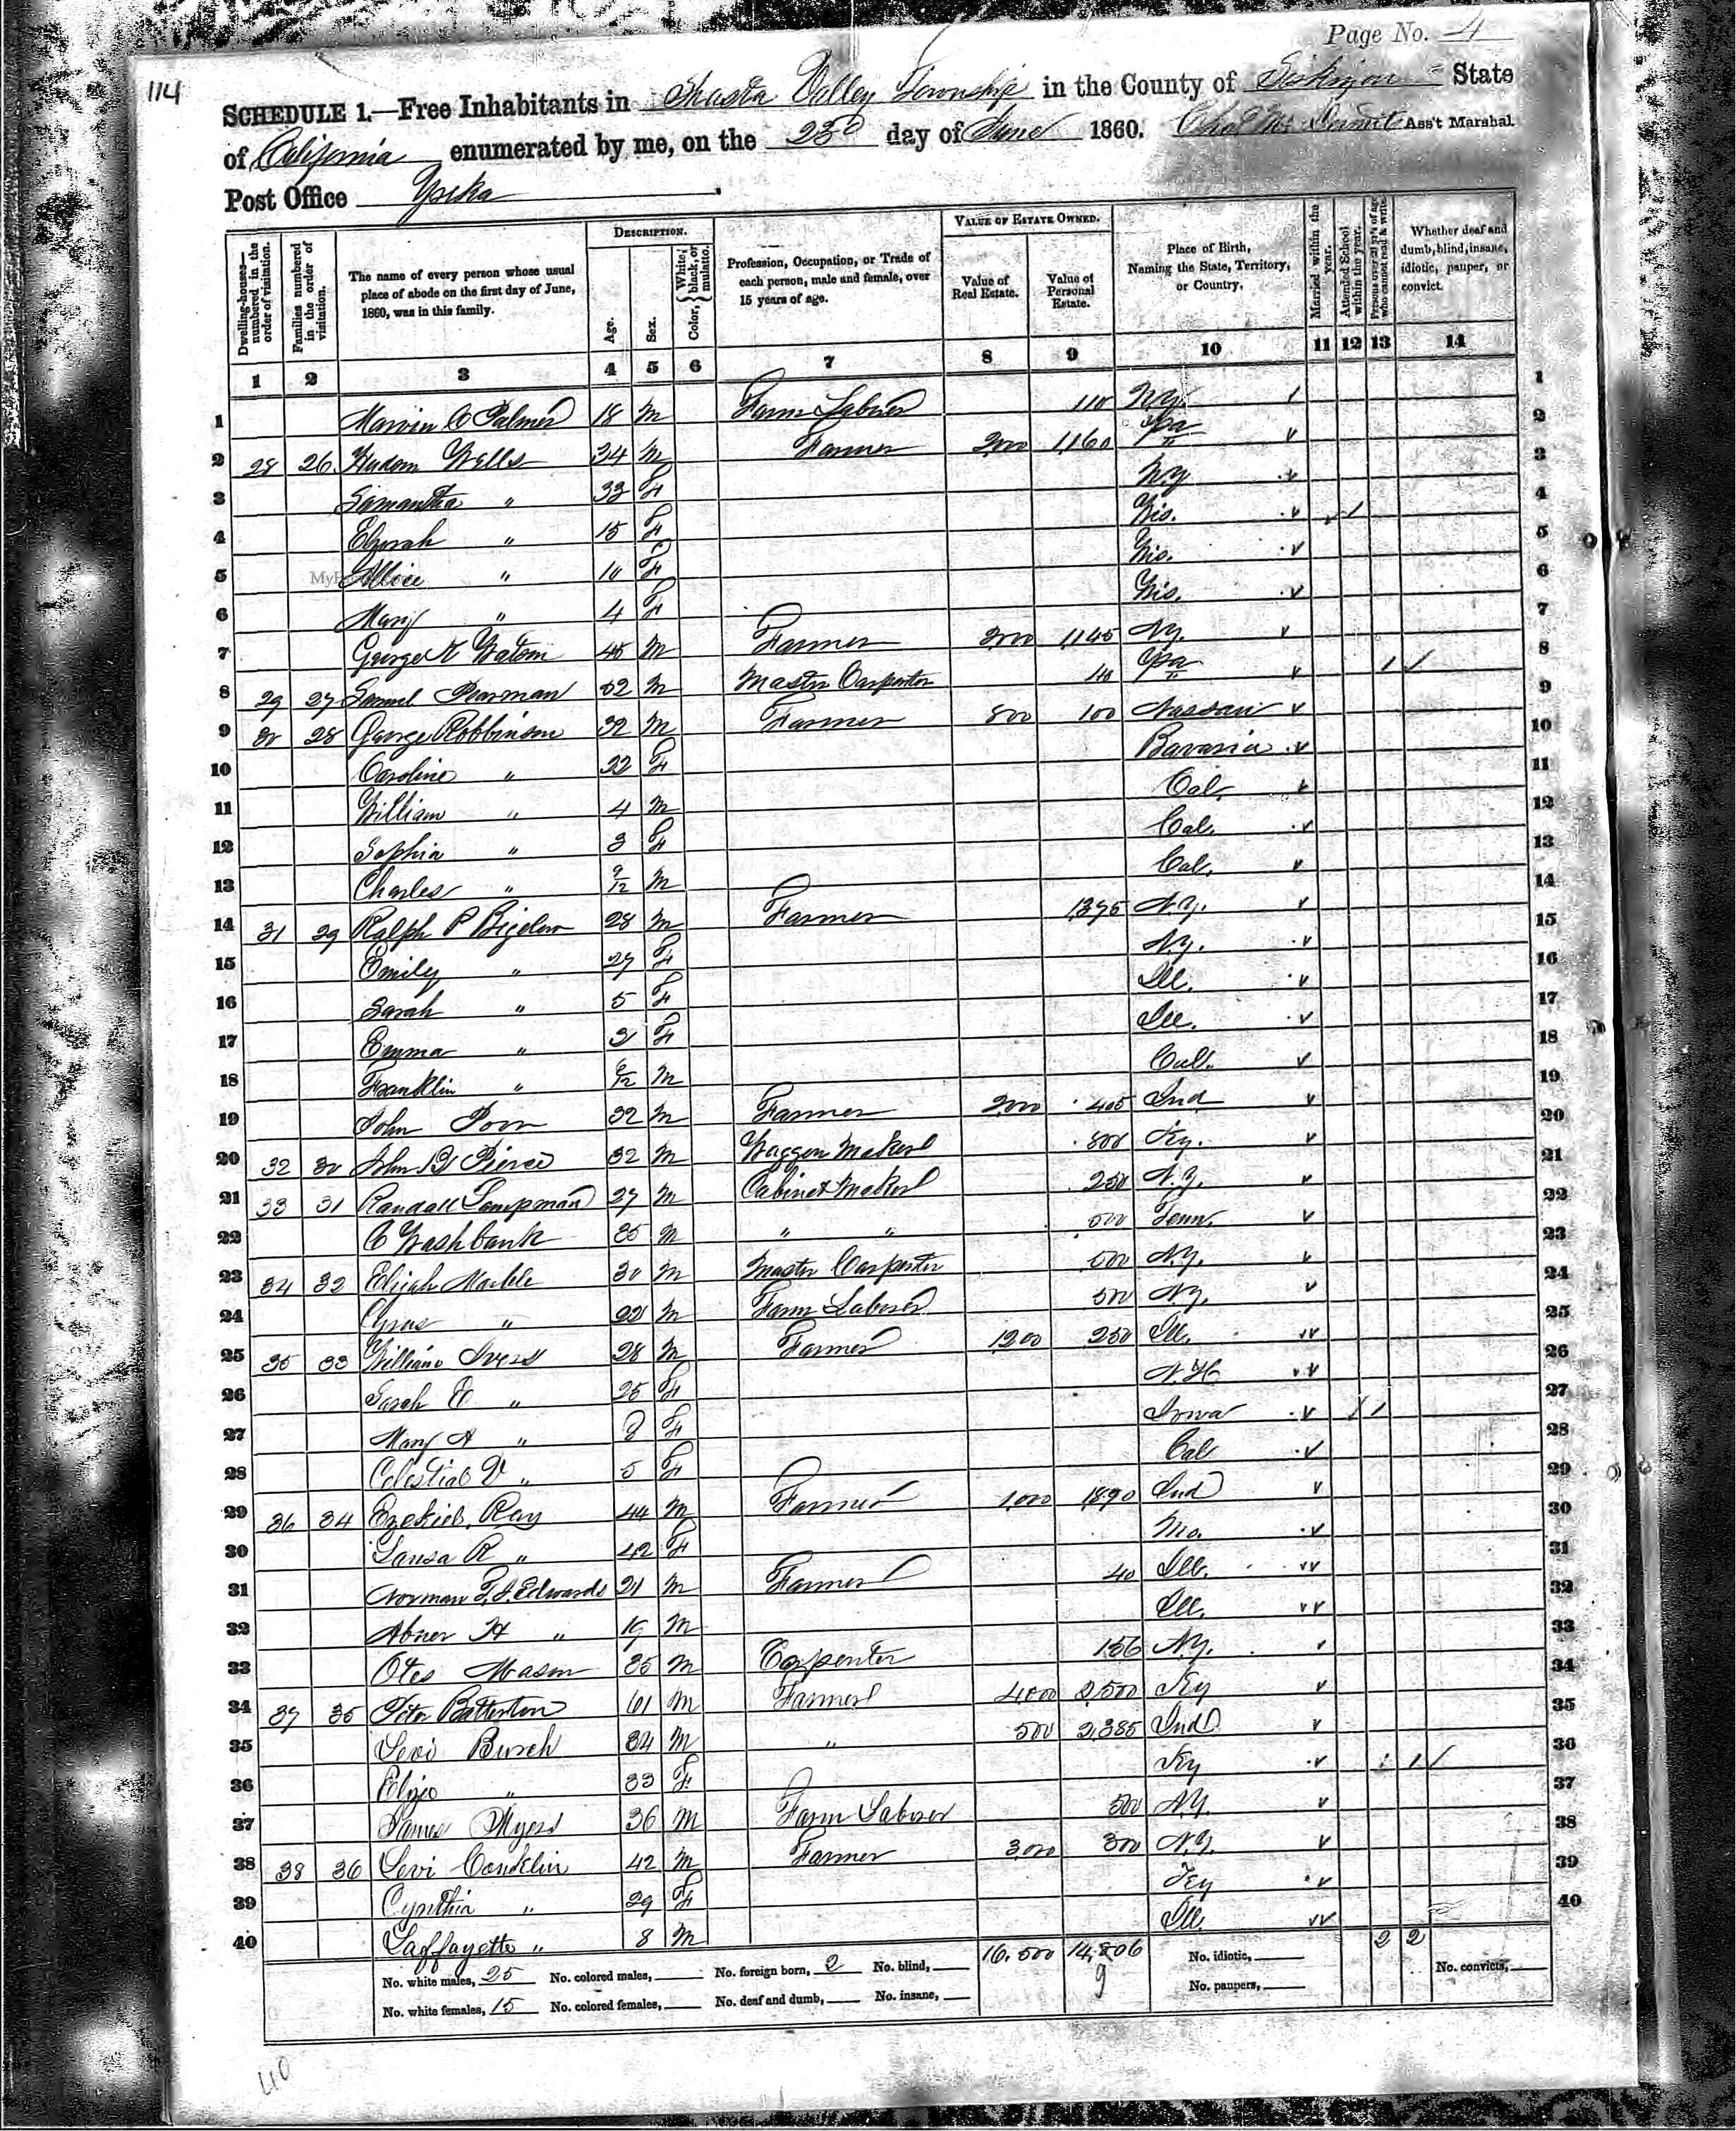 Page No. 4
114
SCHEDULE 1.—Free Inhabitants in Shasta Valley Township in the County of Siskiyou State
of California enumerated by me, on the 23d day of June 1860. Ass't Marshal.
Post Office Yreka
Dwelling-houses—numbered in the order of visitation.
Families numbered in the order of visitation.
The name of every person whose usual place of abode on the first day of June, 1860, was in this family.
DESCRIPTION.
Age.
Sex.
Color, { White, black, or mulatto.
Profession, Occupation, or Trade of each person, male and female, over 15 years of age.
VALUE OF ESTATE OWNED.
Value of Real Estate.
Value of Personal Estate.
Place of Birth, Naming the State, Territory, or Country.
Married within the year.
Attended School within the year.
Persons over 20 y'rs of age who cannot read & write.
Whether deaf and dumb, blind, insane, idiotic, pauper, or convict.
1 2 3 4 5 6 7 8 9 10 11 12 13 14
1 Marvin C Palmer 18 M Farm Laborer 110 N.Y. / 1
2 28 26 Wells 34 M Farmer 2000 1,160 Pa v 2
3 Samantha " 33 F N.Y v 3
4 " 15 F Wis. v / 4
5 Allice " 10 F Wis. v 5
6 Mary " 4 F Wis. v 6
7 George Watson 45 M Farmer 2000 1,145 N.Y. v 7
8 29 27 Samuel 52 M Master Carpenter 40 Pa v 1 / 8
9 30 28 George Robbinson 32 M Farmer 800 100 Nassau v 9
10 Caroline " 22 F Bavaria v 10
11 William " 4 M Cal. v 11
12 Sophia " 3 F Cal. v 12
13 Charles " 9/12 M Cal. v 13
14 31 29 Ralph P Bigelow 28 M Farmer 1,395 N.Y. v 14
15 Emily " 27 F N.Y. v 15
16 Sarah " 5 F Ill. v 16
17 Emma " 3 F Ill. v 17
18 Franklin " M Call. v 18
19 John Poor 32 M Farmer 2000 405 Ind v 19
20 32 30 John Pierce 32 M Waggon Maker 800 Ky. v 20
21 33 31 Randall Lampman 27 M Cabinet Maker 250 N.Y. v 21
22 C Washbank 35 M " " 500 Tenn. v 22
23 34 32 Elijah Marble 30 M Master Carpenter 500 N.Y. v 23
24 Cyrus " 22 M Farm Laborer 500 N.Y. v 24
25 35 33 William Ivers 28 M Farmer 1200 250 Ill. vv 25
26 Sarah E " 25 F N.H v 26
27 Mary A " 8 F Iowa v / 1 27
28 Celestial V " 5 F Cal v 28
29 36 34 Ezekiel Ray 44 M Farmer 1,000 1890 Ind v 29
30 Lousa R " 42 F Mo. v 30
31 Norman T. J. Edwards 21 M Farmer 40 Ill. vv 31
32 Abner H " 19 M Ill. vv 32
33 Otes Mason 35 M Carpenter 156 N.Y. v 33
34 37 35 Peter Batterton 61 M Farmer 4000 2,500 Ky v 34
35 Levi Burch 34 M " 500 2,385 Ind v 35
36 " 33 F Ky v 1 / 36
37 James Myers 36 M Farm Laborer 500 N.Y. v 37
38 38 36 Levi Conklin 42 M Farmer 3,000 300 N.Y. v 38
39 Cynthia " 29 F Key v 39
40 Laffayette " 8 M Ill. vv 40
No. white males, 25 No. colored males, No. foreign born, 2 No. blind, 16,500 14,806 No. idiotic, 2 2 No. convicts,
No. white females, 15 No. colored females, No. deaf and dumb, No. insane, 9 No. paupers,
40